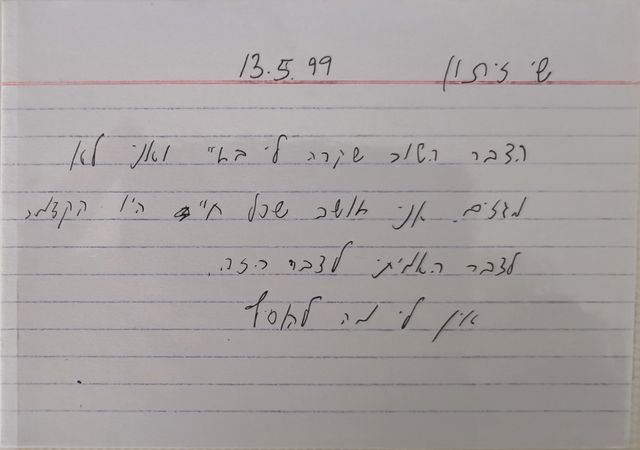 שי זיתון 13.5.99
הדבר הטוב שקרה לי בא" ואני לא
מגזים. אני חושב שכל חיי היו הקדמה
לדבר האמיתי לדבר הזה.
אין לי מה להוסיף